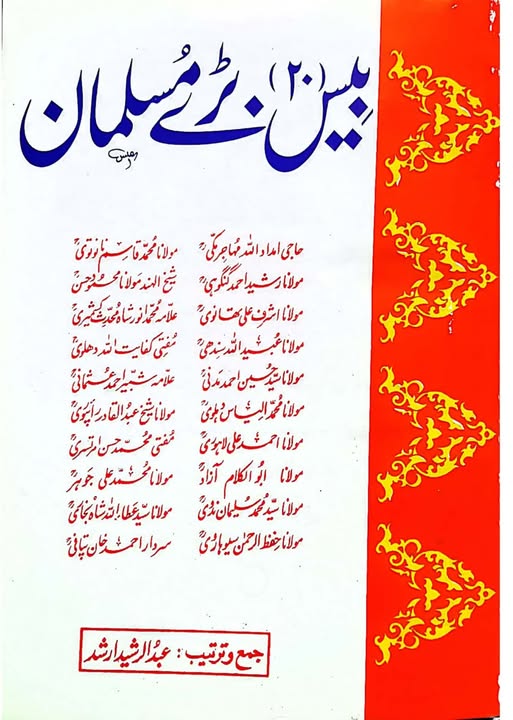 بیس (۲۰) بڑے مُسلمان
حاجی امداد اللہ مہاجر مکیؒ مولانا محمد قاسم نانوتویؒ
مولانا رشید احمد گنگوہیؒ شیخ الہند مولانا محمود حسنؒ
مولانا اشرف علی تھانویؒ علامہ محمد انور شاہ محدث کشمیریؒ
مولانا عُبید اللہ سندھیؒ مفتی کفایت اللہ دھلویؒ
مولانا سید حسین احمد مدنیؒ علامہ شبیر احمد عثمانیؒ
مولانا محمد الیاس دہلویؒ مولانا شیخ عبد القادر رائپوریؒ
مولانا احمد علی لاہوریؒ مفتی محمد حسن امرتسریؒ
مولانا ابو الکلام آزادؒ مولانا محمد علی جوہرؒ
مولانا سید محمد سلیمان ندویؒ مولانا سید عطاء اللہ شاہ بخاریؒ
مولانا حفظ الرحمٰن سیوہارویؒ سردار احمد خان پتافیؒ
جمع و ترتیب : عبدُ الرشید ارشد